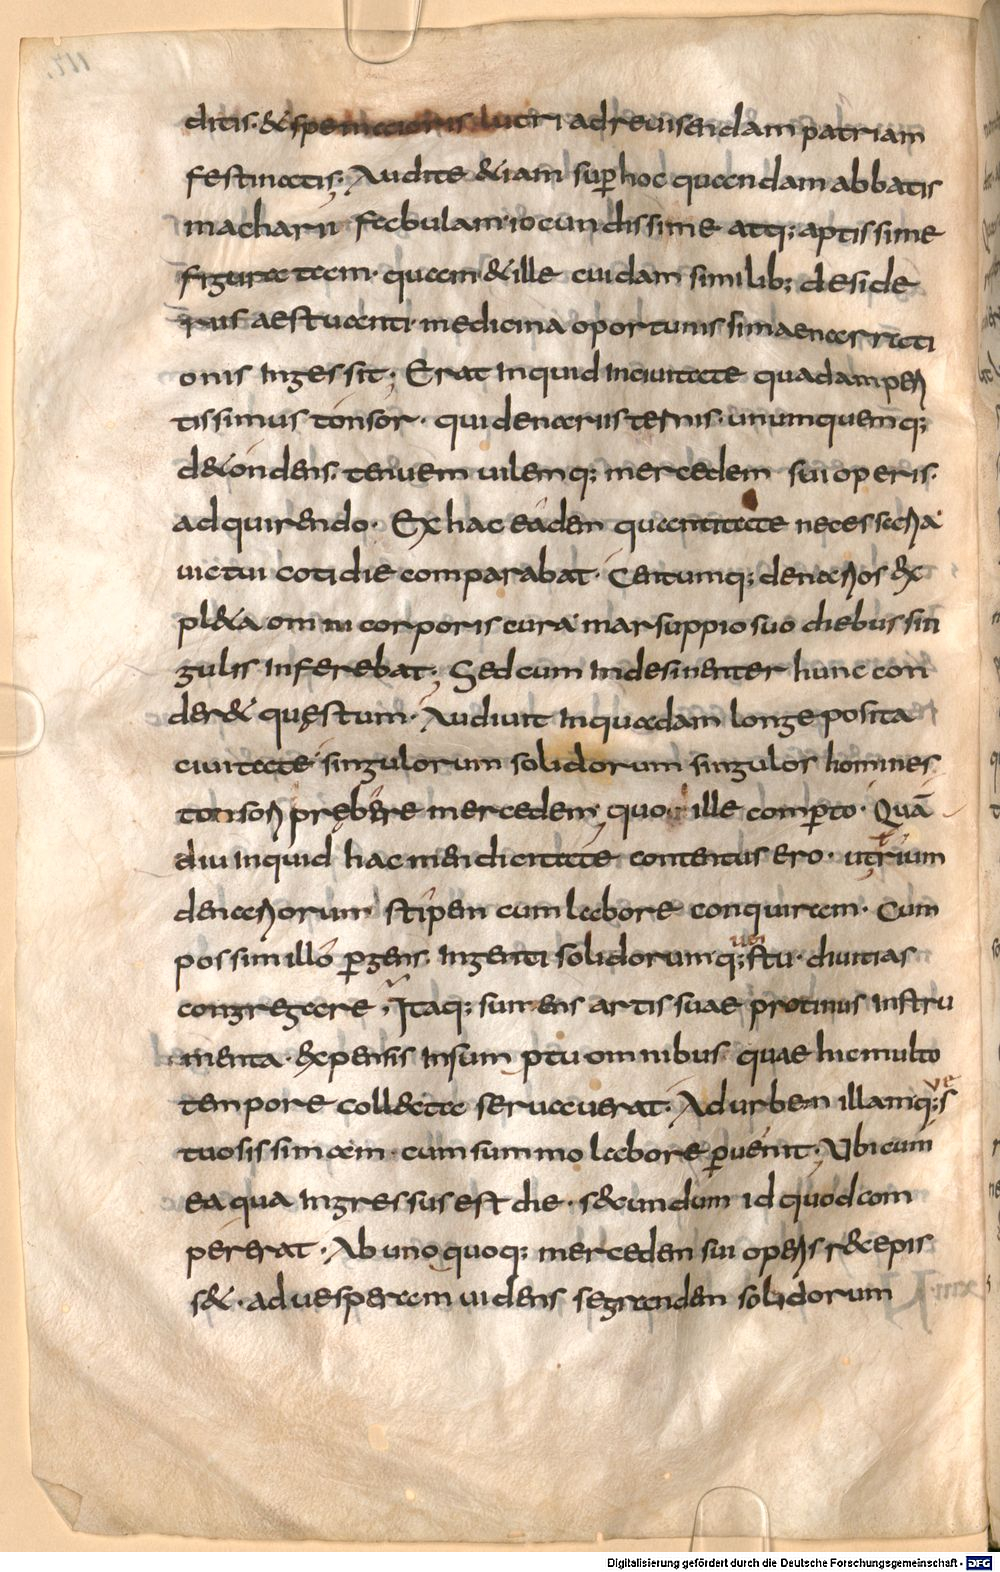 ditis· & spem maioris lucri ad reuisendam patriam
festinatis; Audite &iam sup hoc quendam abbatis
macharii fabulam iocundissime atq; aptissime
figuratam· quam & ille cuidam similib; deside
riis aestuanti medicina oportunissima enarrati
onis Ingessit; Erat Inquid Inciuitate quadam peri
tissimus tonsor· qui denariis ternis· unumquemq;
d&ondens· tenuem uilemq; mercedem sui operis·
adquirendo· Ex hac eadem quantitate necessaria
uictui cotidie comparabat· Centumq; denarios ex
pl&a omni corporis cura marsuppio suo diebus sin
gulis Inferebat; Sed cum Indesinenter hunc con
der& quęstum· Audiuit Inquadam longe posita
ciuitate singulorum solidorum singulos homines
tonsori prębere mercedem; quo ille comperto· Quā
diu Inquid hac mendicitate contentus ero· ut trium
denariorum stipen cum labore conquiram· Cum
possim illo pgens· Ingenti solidorum q;uęstu· diuitias
congregare; Itaq; sumens artis suae protinus Instru
menta· expensis Insumptu omnibus quae hic multo
tempore coll&ta seruauerat· Ad urbem illam q;ves
tuosissimam· cum summo labore puenit; Vbi cum
ea qua Ingressus est die· s&undum id quod com
pererat· Ab uno quoq; mercedem sui operis r&cepis
s&· ad uesperam uidens segrandem solidorum
Digitalisierung gefördert durch die Deutsche Forschungsgemeinschaft · DFG